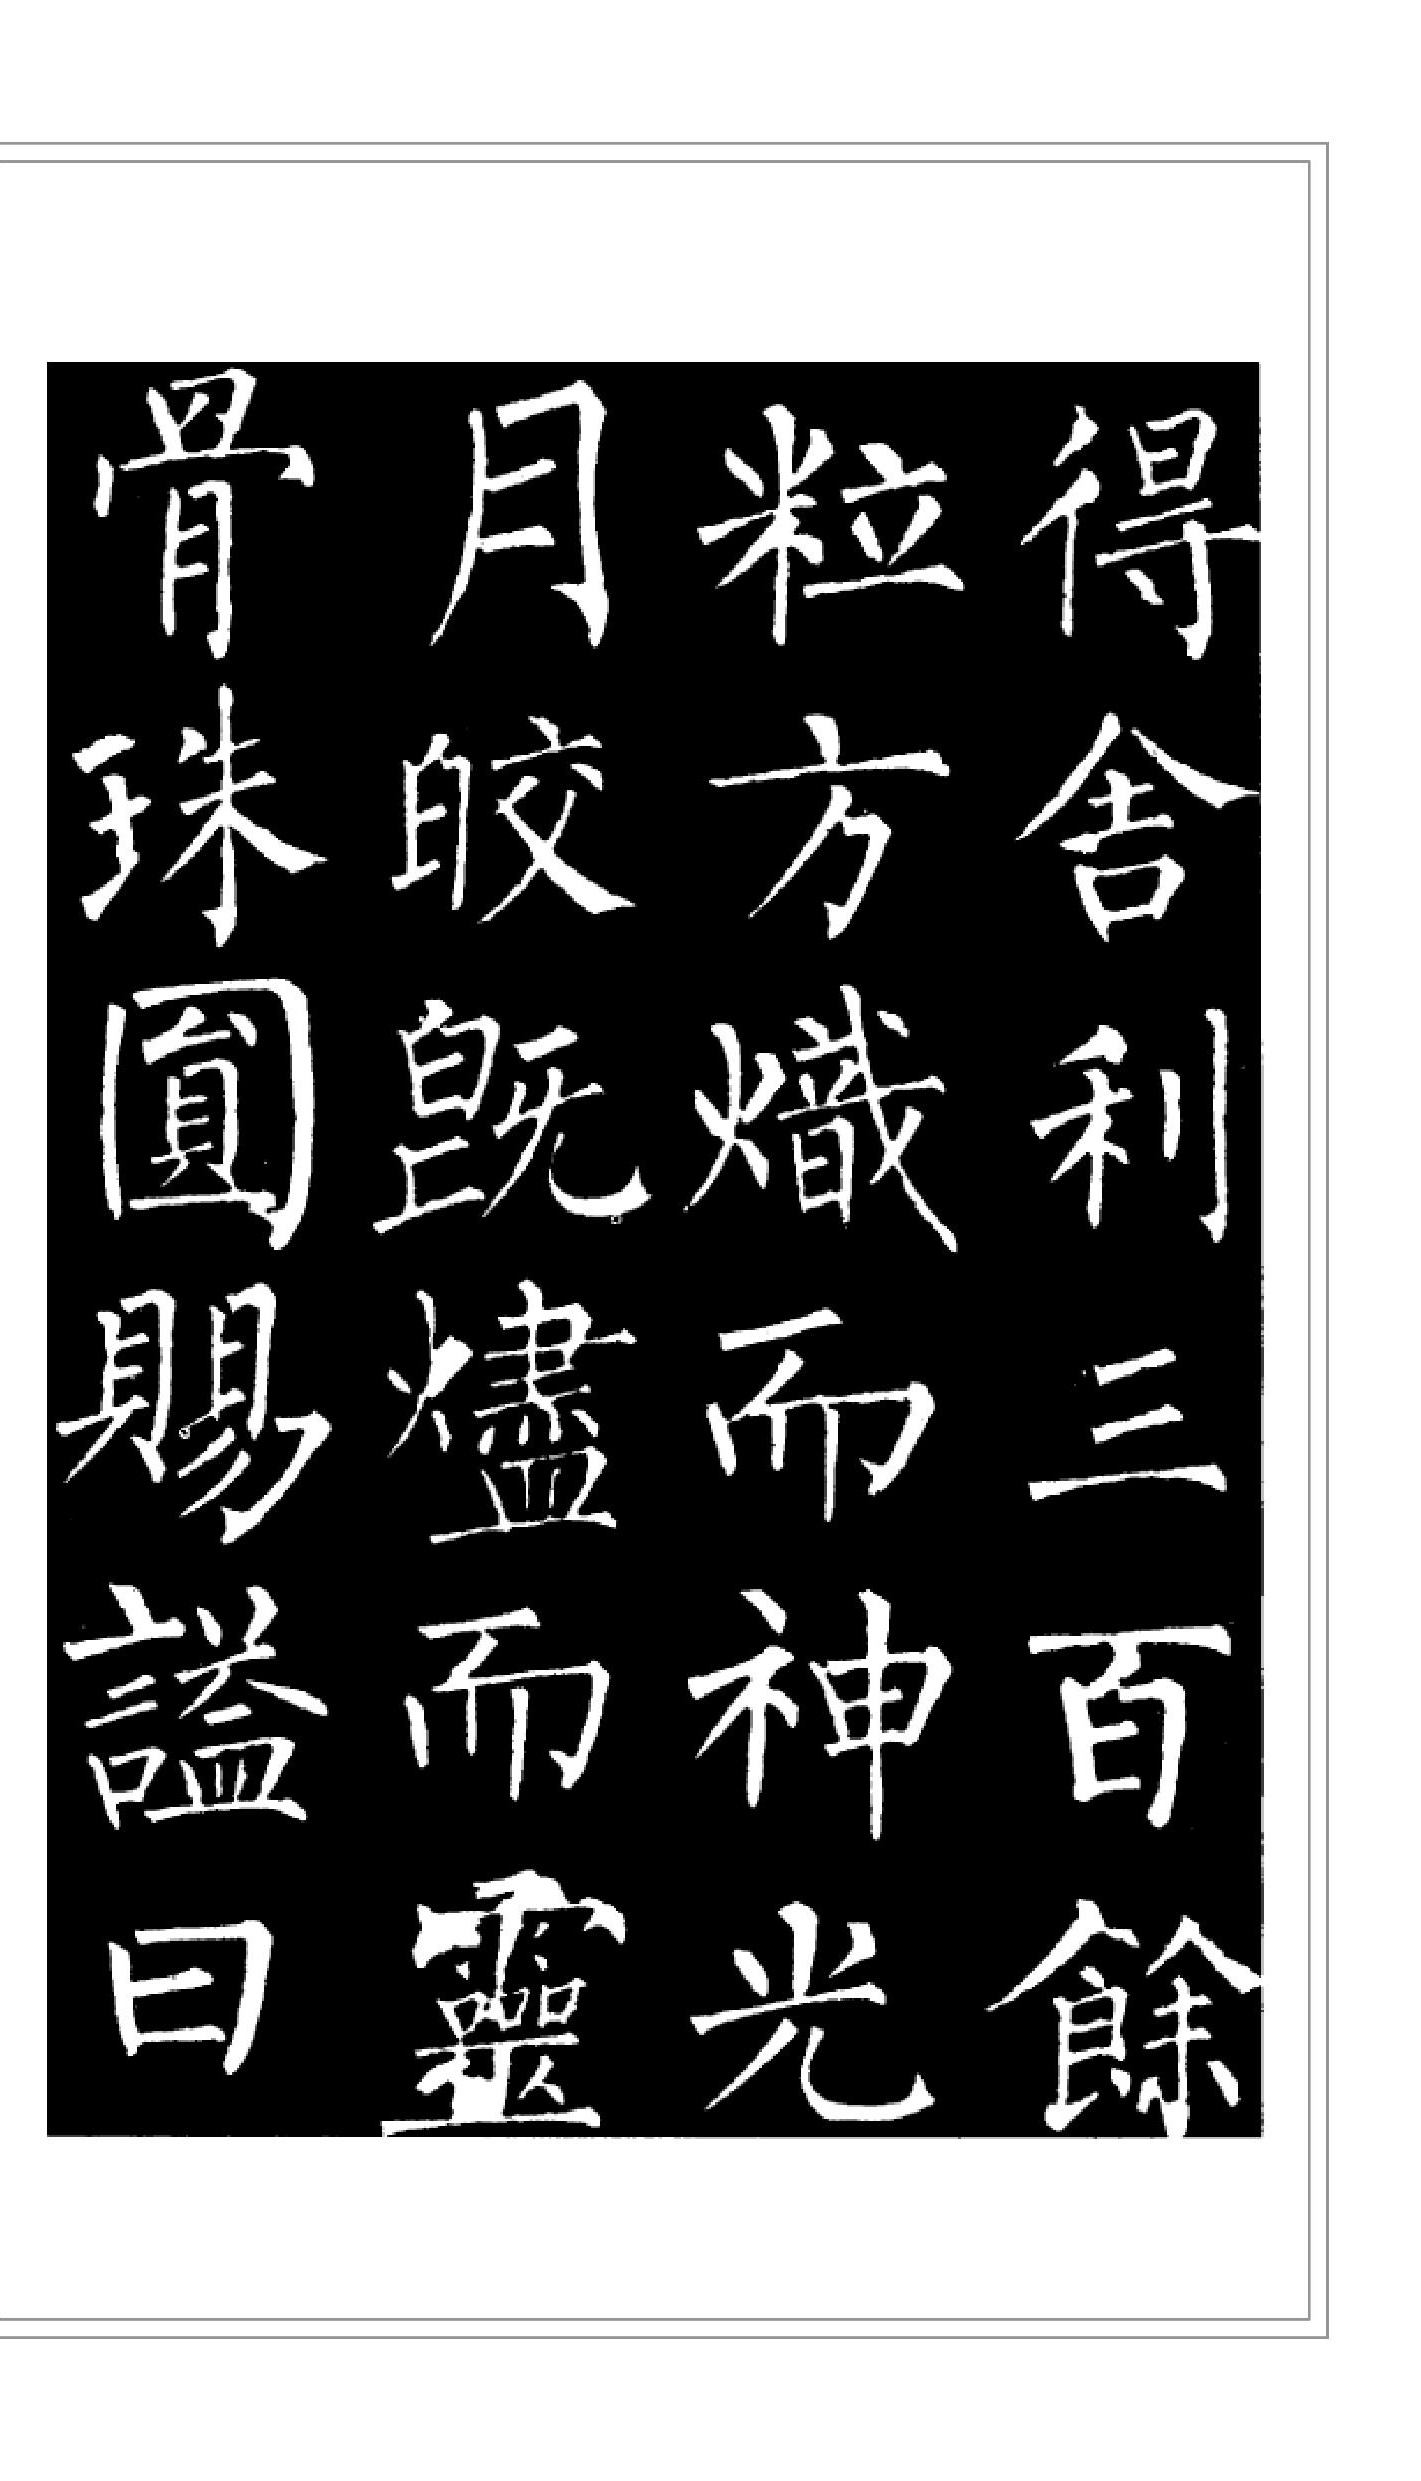 得舍利三百餘
粒方熾而神光
月皎既燼而靈
骨珠圓賜謚曰